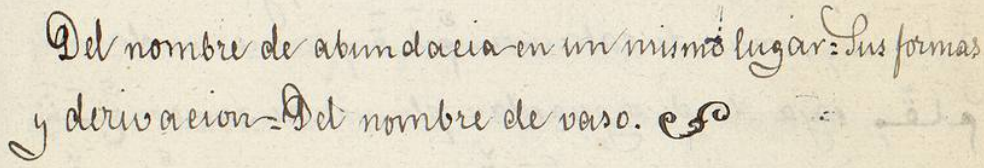 Del nombre de abundacia en un mismo lugar=Sus formas
y derivacion=Del nombre de vaso.